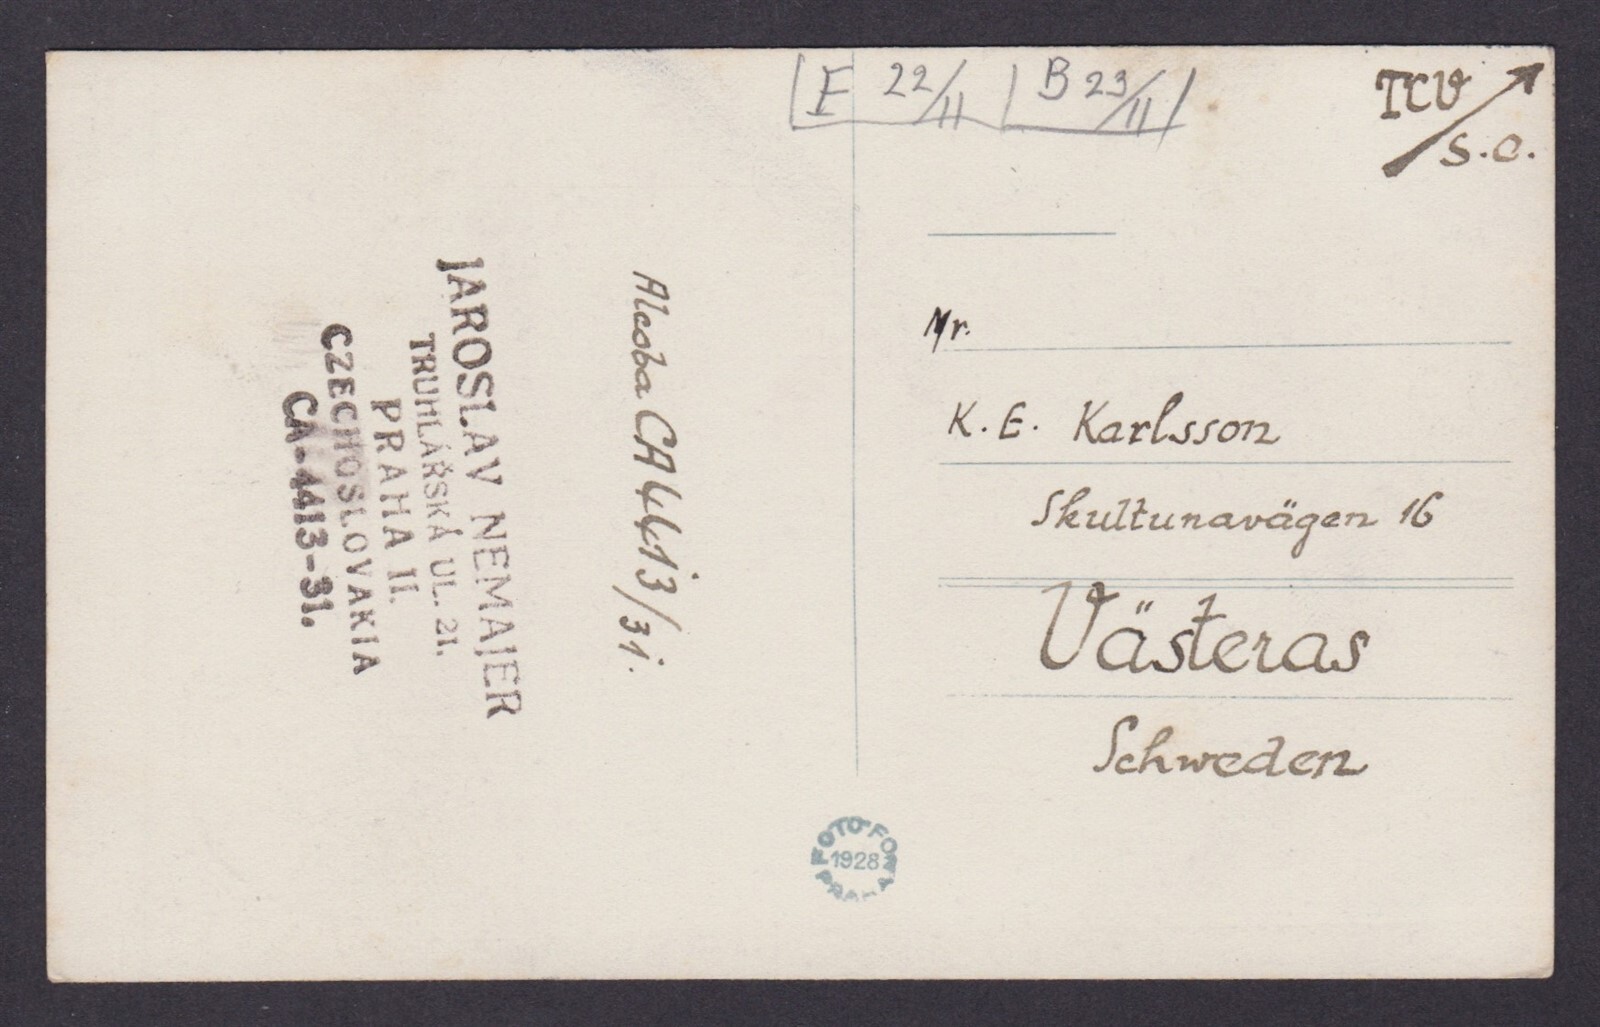 E 22/II B 23/II
TCV
S.C.
JAROSLAV NEMAJER
TRUHLÁŘSKÁ UL. 21.
PRAHA II.
CZECHOSLOVAKIA
CA-4413-31.
Alcoba CA 4413/31.
Mr.
K. E. Karlsson
Skultunavägen 16
Västeras
Schweden
FOTO-FONA
1928
PRAHA